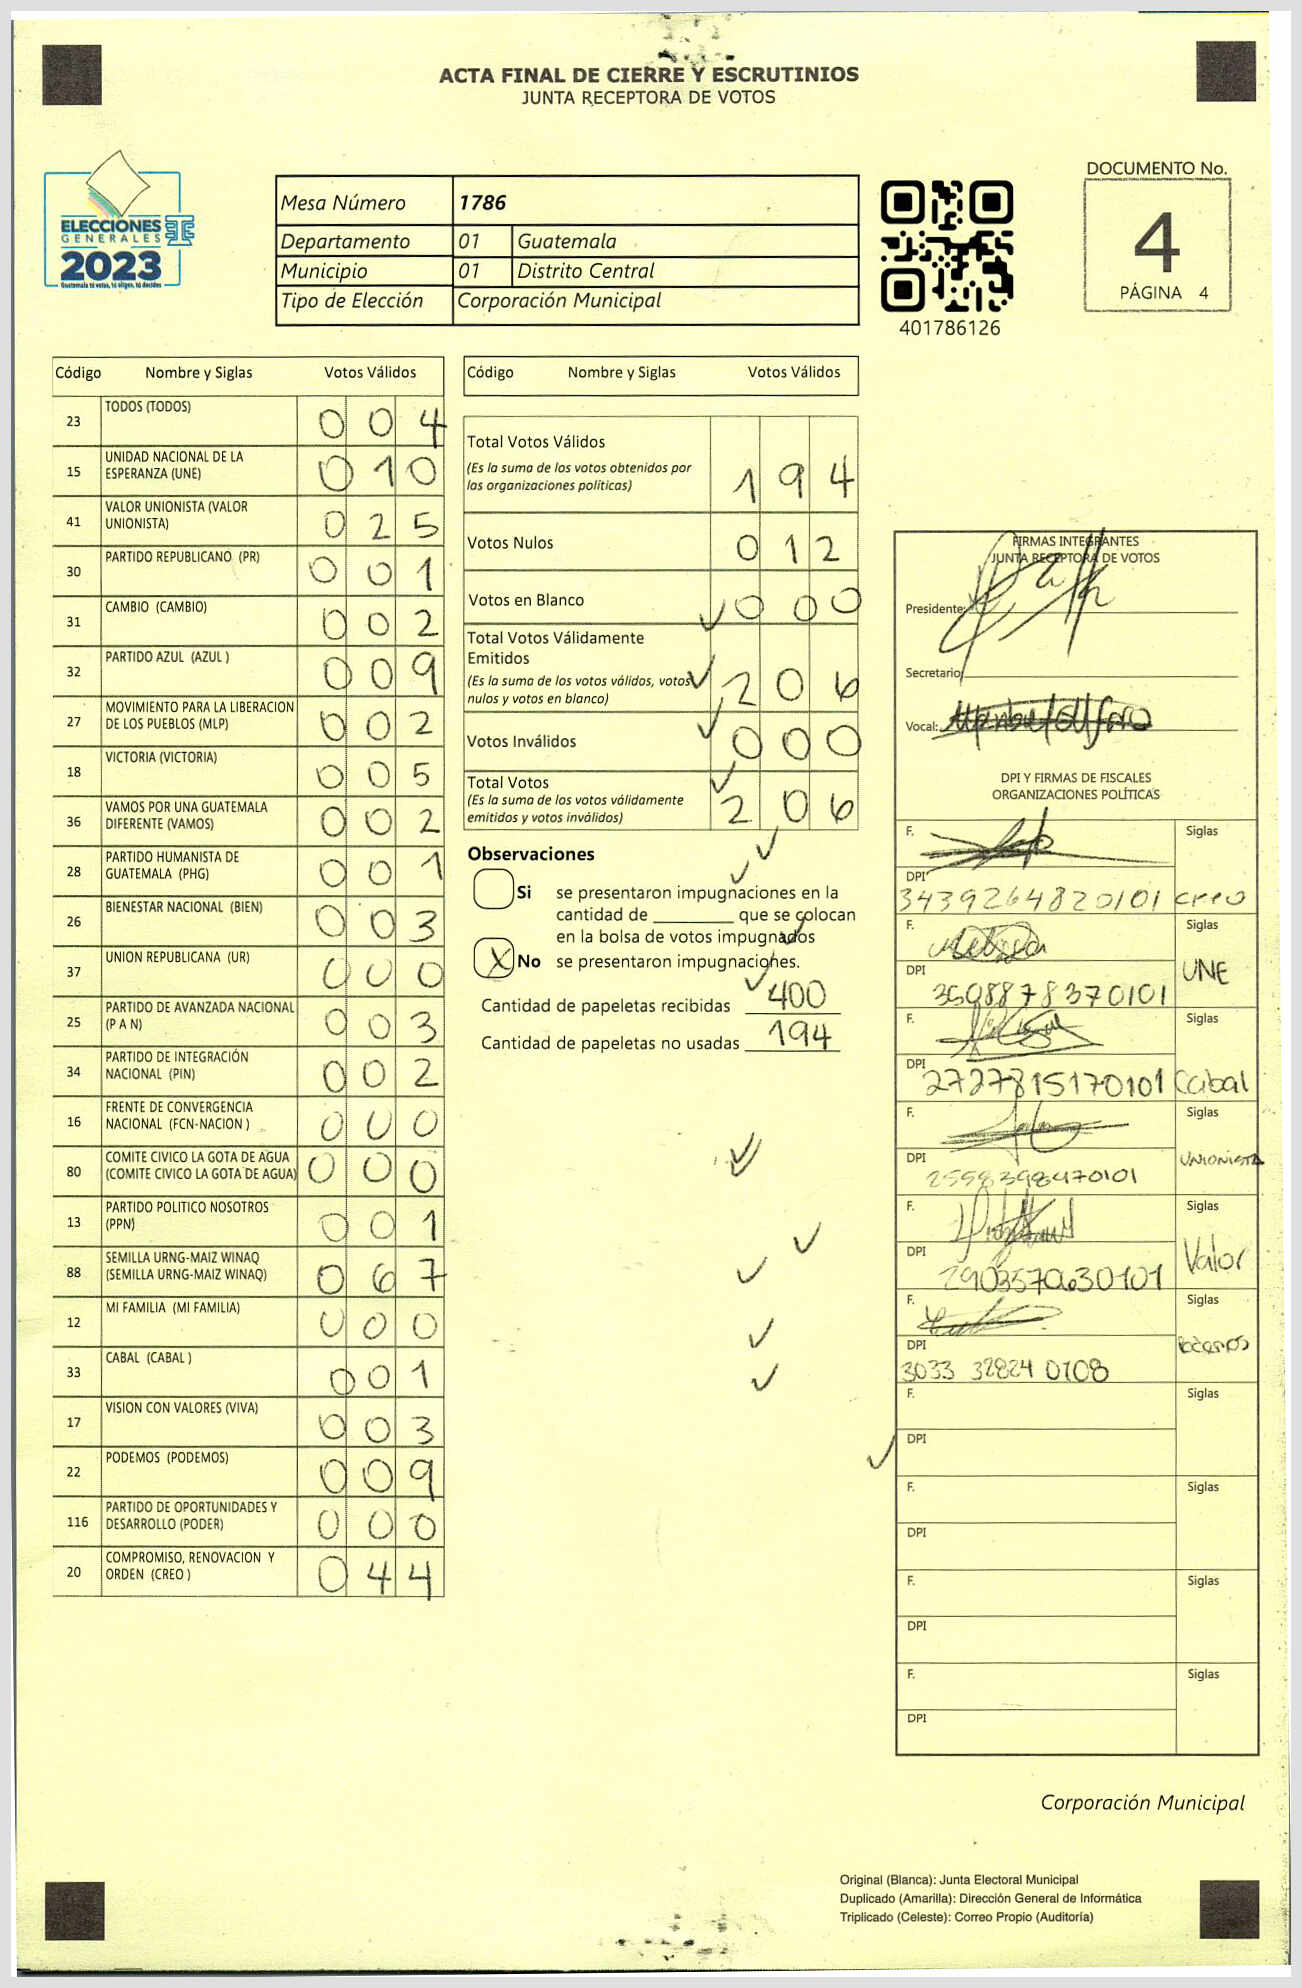 ACTA FINAL DE CIERRE Y ESCRUTINIOS
JUNTA RECEPTORA DE VOTOS
ELECCIONES
GENERALES
2023
Guatemala tú votas, tú eliges, tú decides
Mesa Número 1786
Departamento 01 Guatemala
Municipio 01 Distrito Central
Tipo de Elección Corporación Municipal
401786126
DOCUMENTO No.
4
PÁGINA 4
Código Nombre y Siglas Votos Válidos
23 TODOS (TODOS) 0 0 4
15 UNIDAD NACIONAL DE LA ESPERANZA (UNE) 0 1 0
41 VALOR UNIONISTA (VALOR UNIONISTA) 0 2 5
30 PARTIDO REPUBLICANO (PR) 0 0 1
31 CAMBIO (CAMBIO) 0 0 2
32 PARTIDO AZUL (AZUL ) 0 0 9
27 MOVIMIENTO PARA LA LIBERACION DE LOS PUEBLOS (MLP) 0 0 2
18 VICTORIA (VICTORIA) 0 0 5
36 VAMOS POR UNA GUATEMALA DIFERENTE (VAMOS) 0 0 2
28 PARTIDO HUMANISTA DE GUATEMALA (PHG) 0 0 1
26 BIENESTAR NACIONAL (BIEN) 0 0 3
37 UNION REPUBLICANA (UR) 0 0 0
25 PARTIDO DE AVANZADA NACIONAL (P A N) 0 0 3
34 PARTIDO DE INTEGRACIÓN NACIONAL (PIN) 0 0 2
16 FRENTE DE CONVERGENCIA NACIONAL (FCN-NACION ) 0 0 0
80 COMITE CIVICO LA GOTA DE AGUA (COMITE CIVICO LA GOTA DE AGUA) 0 0 0
13 PARTIDO POLITICO NOSOTROS (PPN) 0 0 1
88 SEMILLA URNG-MAIZ WINAQ (SEMILLA URNG-MAIZ WINAQ) 0 6 7
12 MI FAMILIA (MI FAMILIA) 0 0 0
33 CABAL (CABAL ) 0 0 1
17 VISION CON VALORES (VIVA) 0 0 3
22 PODEMOS (PODEMOS) 0 0 9
116 PARTIDO DE OPORTUNIDADES Y DESARROLLO (PODER) 0 0 0
20 COMPROMISO, RENOVACION Y ORDEN (CREO ) 0 4 4
Código Nombre y Siglas Votos Válidos
Total Votos Válidos
(Es la suma de los votos obtenidos por
las organizaciones políticas) 1 9 4
Votos Nulos 0 1 2
Votos en Blanco 0 0 0
Total Votos Válidamente
Emitidos
(Es la suma de los votos válidos, votos
nulos y votos en blanco) 2 0 6
Votos Inválidos 0 0 0
Total Votos
(Es la suma de los votos válidamente
emitidos y votos inválidos) 2 0 6
Observaciones
Si se presentaron impugnaciones en la
cantidad de ________ que se colocan
en la bolsa de votos impugnados
X No se presentaron impugnaciones.
Cantidad de papeletas recibidas 400
Cantidad de papeletas no usadas 194
FIRMAS INTEGRANTES
JUNTA RECEPTORA DE VOTOS
Presidente:
Secretario:
Vocal:
DPI Y FIRMAS DE FISCALES
ORGANIZACIONES POLÍTICAS
F. Siglas
DPI 3439264820101 creo
F. Siglas
DPI 3598878370101 UNE
F. Siglas
DPI 2727815170101 Cabal
F. Siglas
DPI 2558398470101 UNIONISTA
F. Siglas
DPI 2903570630101 Valor
F. Siglas
DPI 3033 32824 0108 Podemos
F. Siglas
DPI
F. Siglas
DPI
F. Siglas
DPI
F. Siglas
DPI
Corporación Municipal
Original (Blanca): Junta Electoral Municipal
Duplicado (Amarilla): Dirección General de Informática
Triplicado (Celeste): Correo Propio (Auditoría)